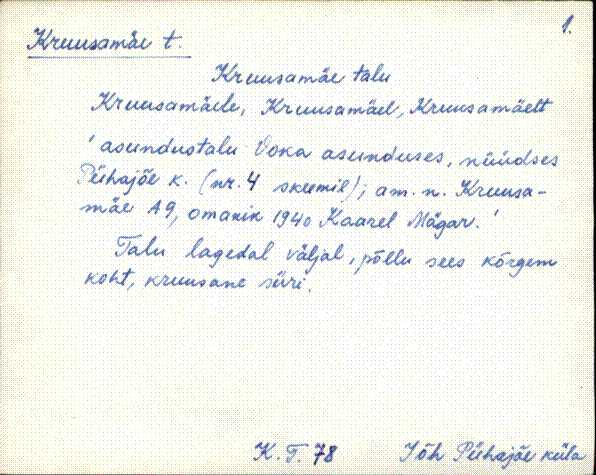 1.
Kruusamäe t.
Kruusamäe talu
Kruusamäele, Kruusamäel, Kruusamäelt
' asundustalu Voka asunduses, nüüdses
Pühajõe k. (nr. 4 skeemil); am. n. Kruusa-
mäe A9, omanik 1940 Kaarel Mägar.'
Talu lagedal väljal, põllu sees kõrgem
koht, kruusane süri.
K. T. 78 Jõh Pühajõe küla